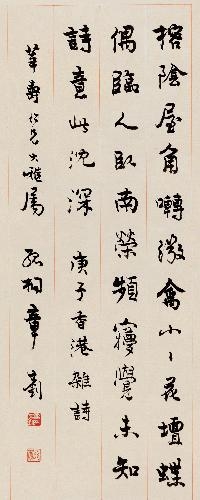 榕陰屋角囀微禽小〻花壇蝶
偶臨人臥南榮頻覺未知
詩意此沈深 庚子香港雜詩
壽仁兄大雅屬 孤桐章士釗